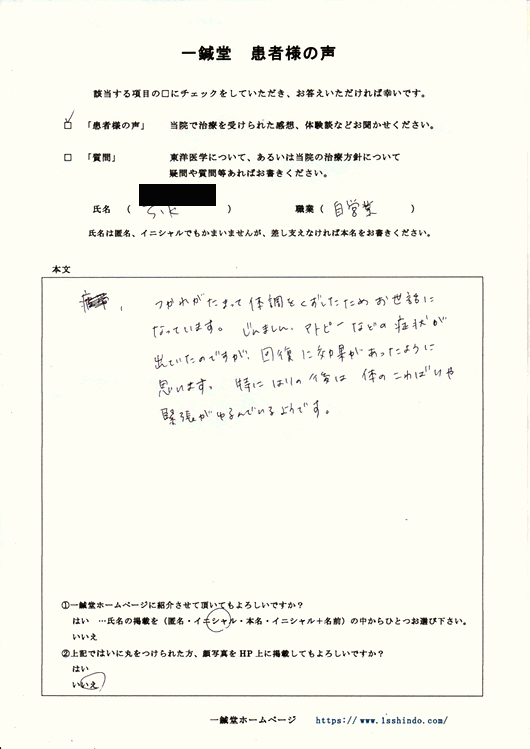 一鍼堂 患者様の声
該当する項目の□にチェックをしていただき、お答えいただければ幸いです。
□ 「患者様の声」 当院で治療を受けられた感想、体験談などお聞かせください。
□ 「質問」 東洋医学について、あるいは当院の治療方針について
疑問や質問等あればお書きください。
氏名 ( S.K ) 職業 ( 自営業 )
氏名は匿名、イニシャルでもかまいませんが、差し支えなければ本名をお書きください。
本文
つかれがたまって体調をくずしたためお世話に
なっています。じんましん、アトピーなどの症状が
出ていたのですが、回復に効果があったように
思います。特にはりの後は体のこわばりや
緊張がゆるんでいるようです。
①一鍼堂ホームページに紹介させて頂いてもよろしいですか?
はい …氏名の掲載を(匿名・イニシャル・本名・イニシャル+名前)の中からひとつお選び下さい。
いいえ
②上記ではいに丸をつけられた方、顔写真をHP上に掲載してもよろしいですか?
はい
いいえ
一鍼堂ホームページ https://www.1sshindo.com/